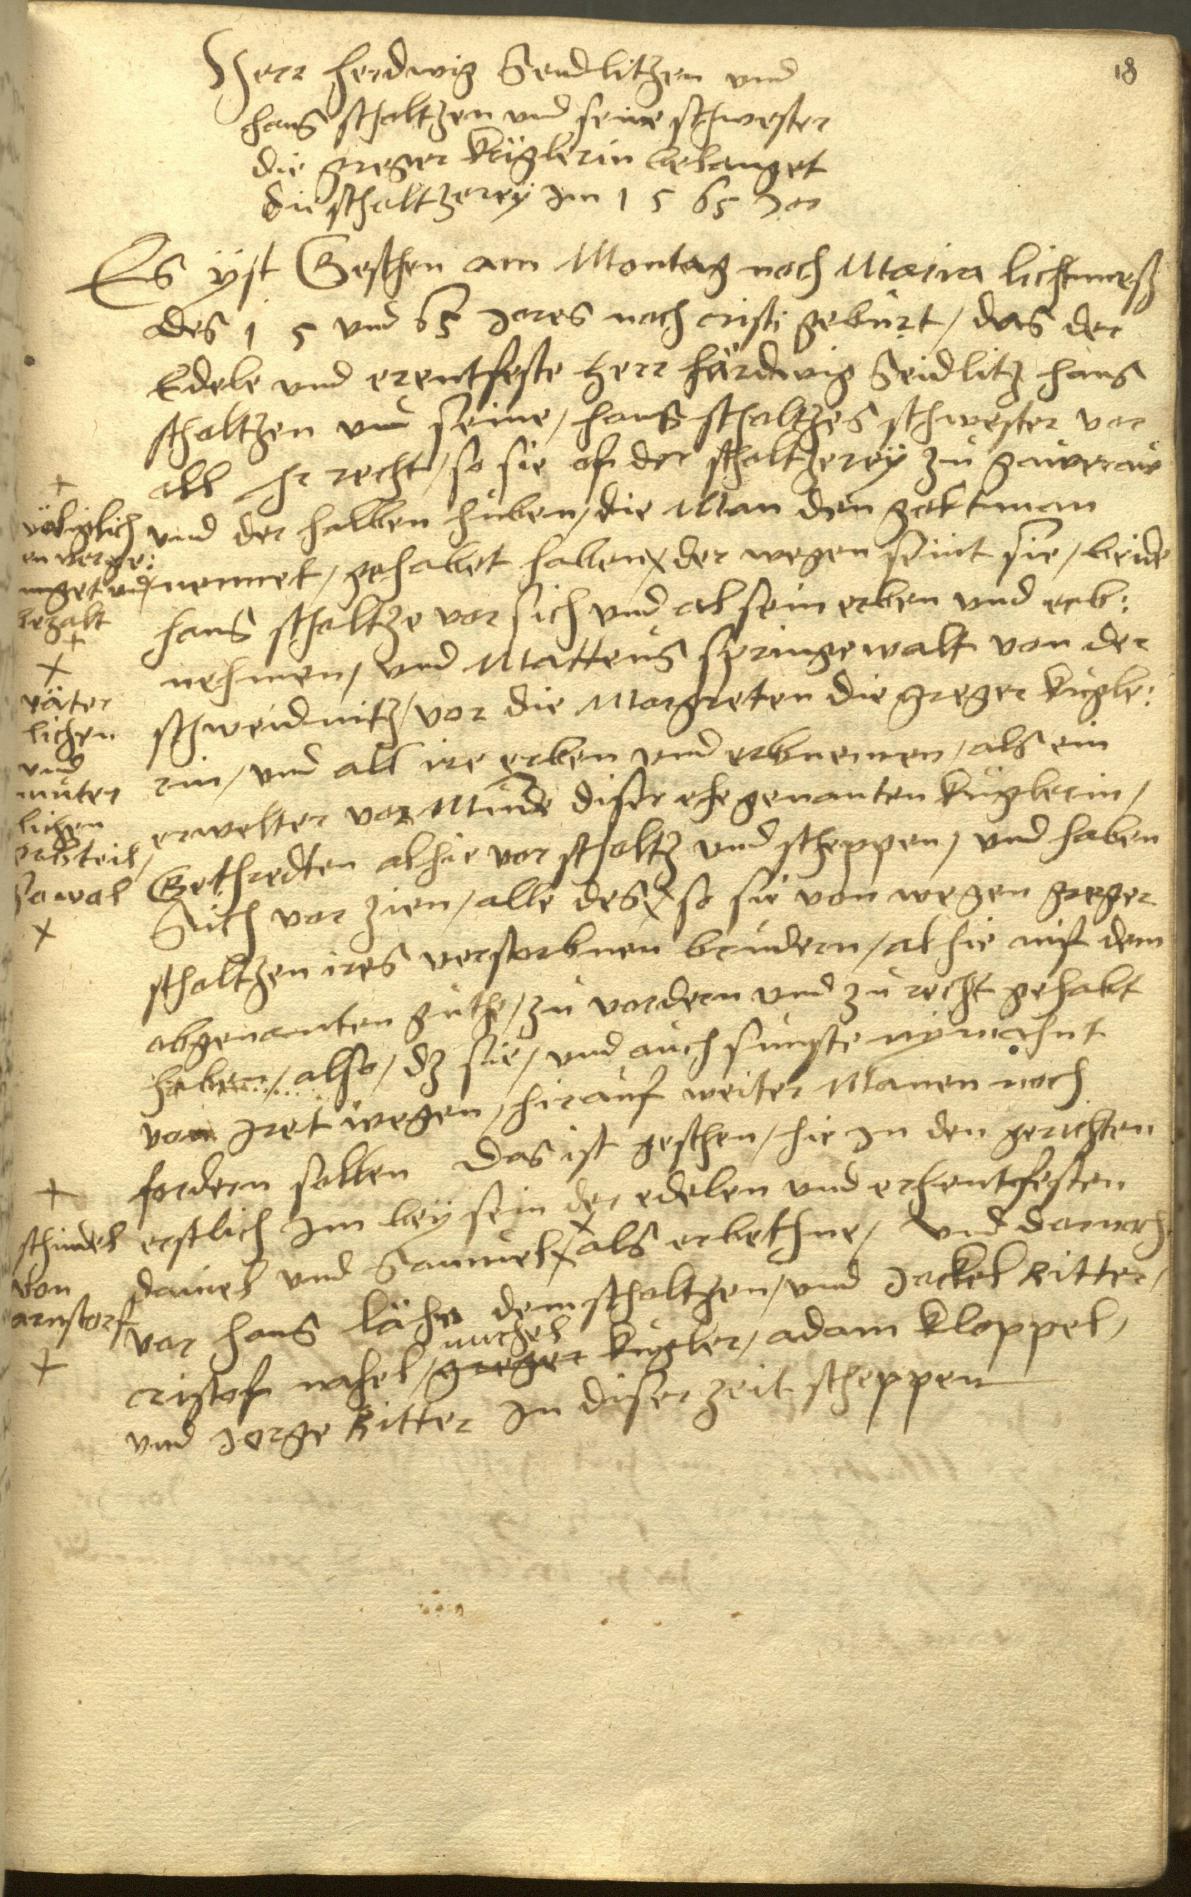 18
Herr herdwig Sendlitzen und
hans scholtzen und seine schwester
die greger küglerin belanget
die scholtzerey Im 1565 Jor
Es yst Geschen am Montag noch Maria lichtmeß
des 15 und 65 Jores noch cristi geburt / das der
Edele und erentfeste herr härdwig Seidlitz hans
scholtzen und seine / hans scholtzes schwester vor
all Ihr recht / so sie of der scholtzerey zu
und der halben huben / die Man den
nennet / gehabet haben × der wegen seint sie / beide
hans scholtze vor sich und al sein erben und erb:
nehmen / und Matteus springewalt von der
schweidnitz / vor die Margreten die greger kügle:
rin / und all ire erben und erbnemen / als ein
erwelter vor Munde diser ehe genanten küglerin /
Gethredten alhie vor scholtz und scheppen / und haben
Sich vor zien / alle des × so sie von wegen greger
scholtzen ires verstorbnen brudern / alhie auf dem
obgenanten guthe / zu vordern und zu recht gehabt
haben / also / dz sie / und auch sunste nymahnt
von Iret wegen / hirauf weiter Manen noch
fordern sollen Das ist geschen / hie In den gerichten
erstlich Im bey sein der edelen und erhentfesten
daniel und Samuel × als erbethne / und darnach
vor hans lähn dem scholtzen / und Jackel Ritter /
cristof / michel
greger kugler / adam kloppel /
und Jorge Ritter In diser zeit scheppen
+
völiglich
en verge:
nuget und
bezalt
+
×
väter
lichen
und
muter
lichen
erbteil /
sowol
×
+
schindel
von
arnstorf
+